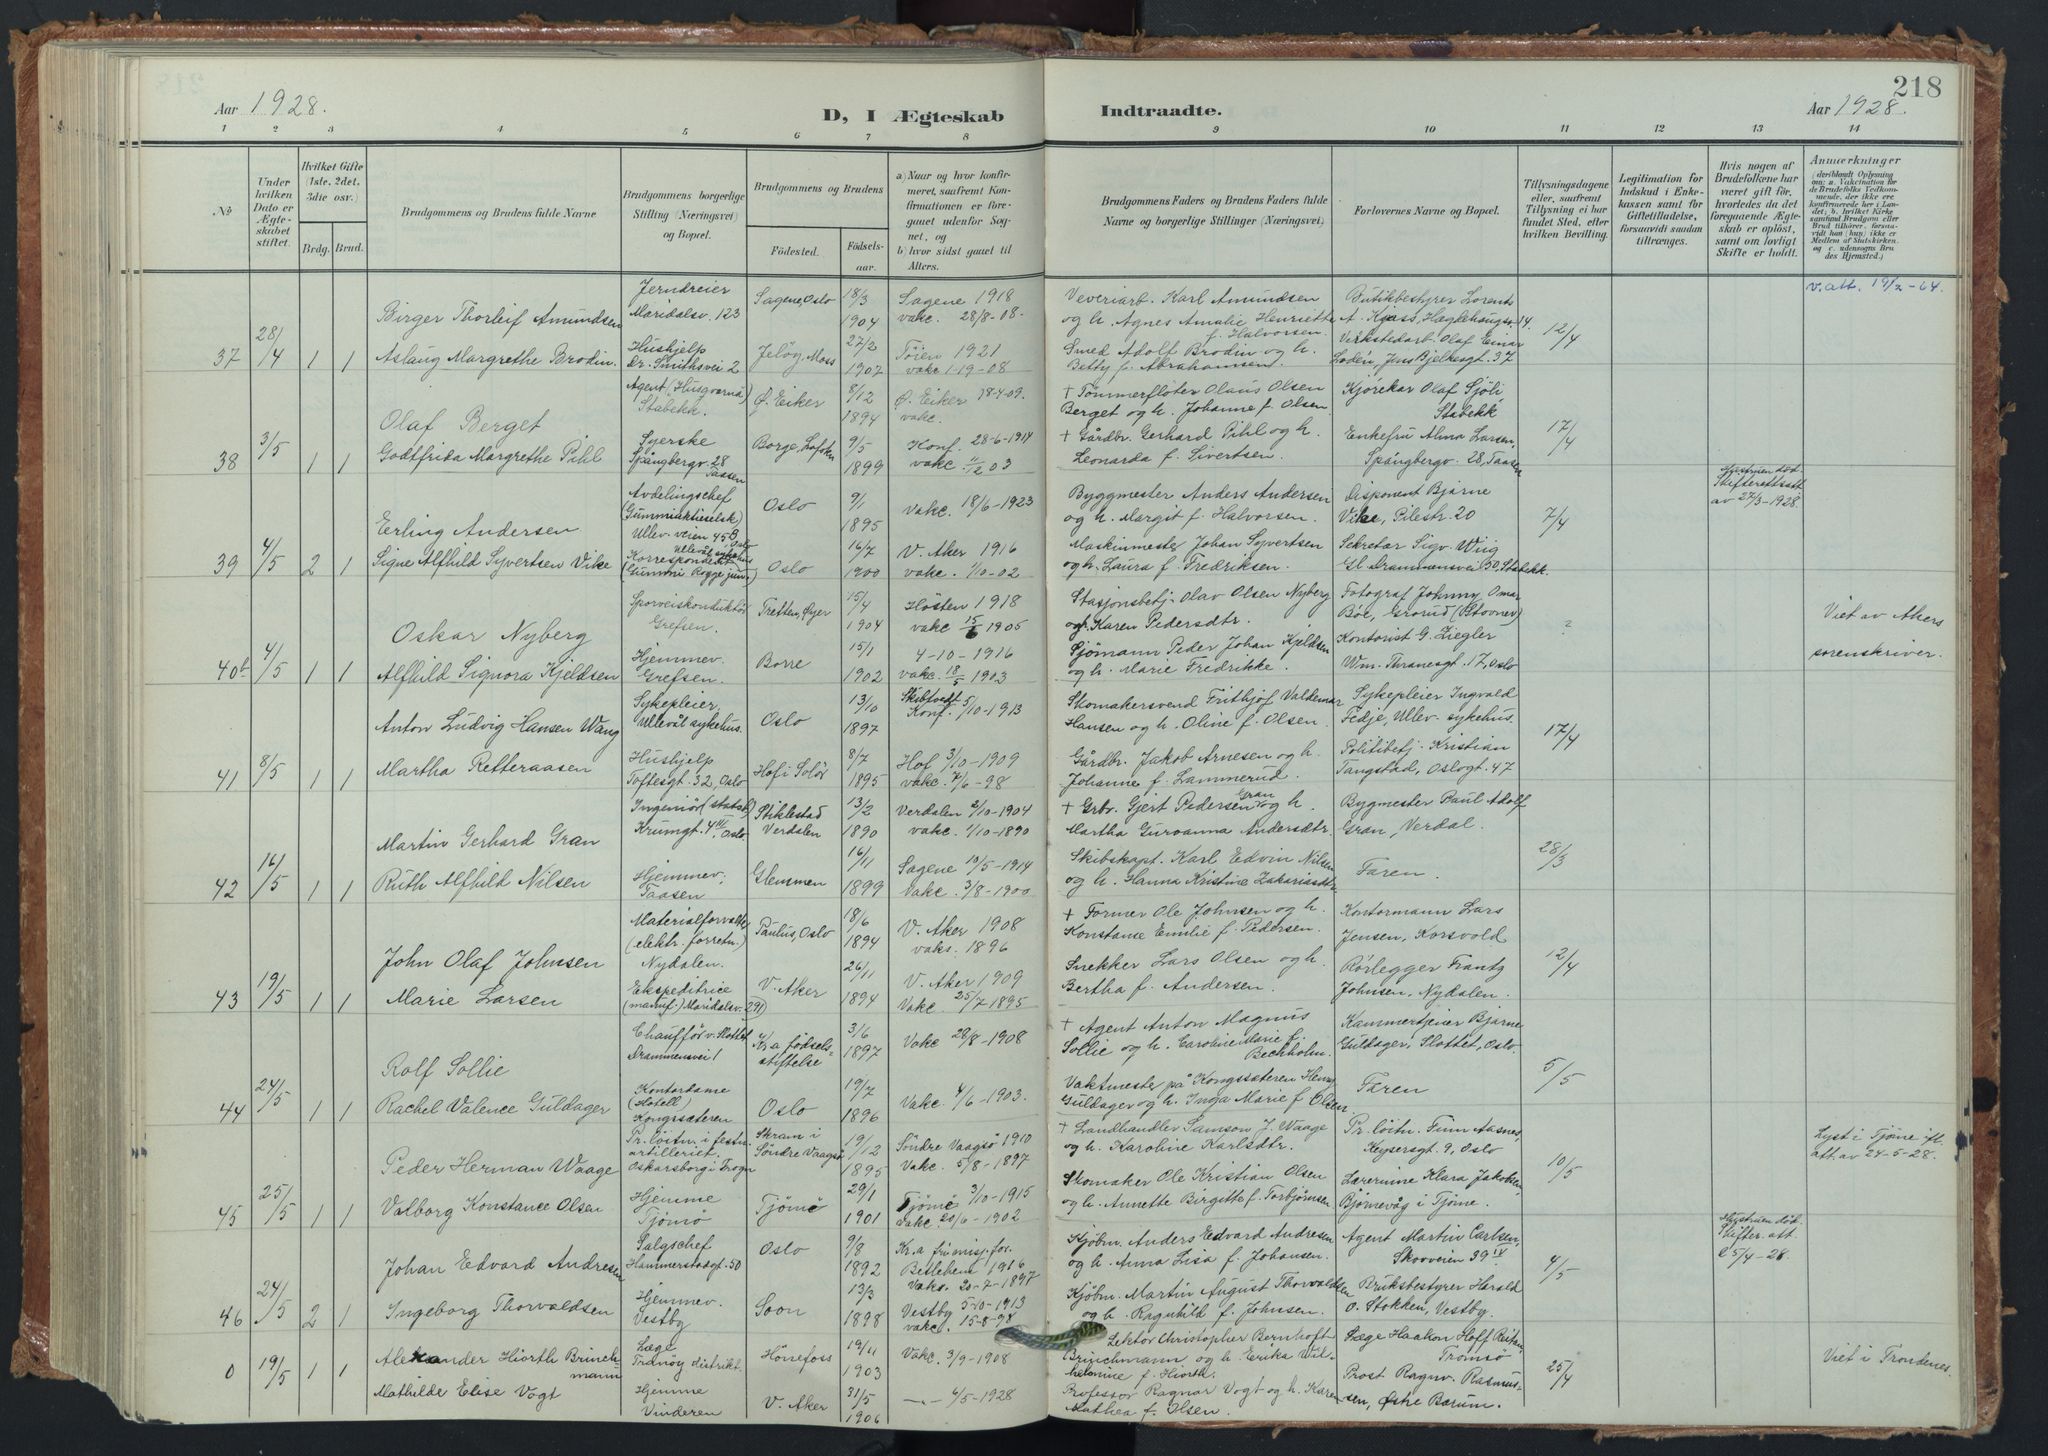 218
Aar 1928.
D, I Ægteskab Indtraadte.
Aar 1928.
1 2 3 4 5 6 7 8 9 10 11 12 13 14
No
Under hvilken Dato er Ægteskabet stiftet.
Hvilket Gifte (1ste, 2det, 3die osv.)
Brdg. Brud.
Brudgommens og Brudens fulde Navne
Brudgommens borgerlige Stilling (Næringsvei) og Bopæl.
Brudgommens og Brudens
Födested.
Födselsaar.
a) Naar og hvor konfirmeret, saafremt Konfirmationen er foregaaet udenfor Sognet, og
b) hvor sidst gaaet til Alters.
Brudgommens Faders og Brudens Faders fulde Navne og borgerlige Stillinger (Næringsvei)
Forlovernes Navne og Bopæl.
Tillysningsdagene eller, saafremt Tillysning ei har fundet Sted, efter hvilken Bevilling.
Legitimation for Indskud i Enkekassen samt for Giftetilladelse, forsaavidt saadan tiltrænges.
Hvis nogen af Brudefolkene har været gift för, hvorledes da det foregaaende Ægteskab er oplöst, samt om lovligt Skifte er holdt.
Anmerkninger
(deriblandt Oplysning om: a. Vakcination for de Brudefolks Vedkommende, der ikke ere konfirmerede her i Landet; b. hvilket Kirkesamfund Brudgom eller Brud tilhörer, forsaavidt han (hun) ikke er Medlem af Statskirken og c. udensogns Brudes Hjemsted.)
37 28/4 1 1
Birger Thorleif Amundsen
Jerndreier
Maridalsv. 123
Sagene, Oslo
18/3 1904
Sagene 1918
vakc. 28/8-08.
Veveriarb. Karl Amundsen
og h. Agnes Amalie Henriette
f. Halvorsen.
Butikkbestyrer Lorents
12/4
v. att. 19/2-64.
Aslaug Margrethe Brodin.
Hushjelp
Dr. Smithsvei 2
Jelöy, Moss
27/2 1907
Töien 1921
Smed Adolf Brodin og h.
Betty f. Abrahamsen.
Verkstedarb. Olaf Einar
Lodén, Jens Bjelkesgt. 37
38 3/5 1 1
Olaf Berget
Agent (Husqvarna)
Stabekk.
Ø. Eiker
8/12 1894
Ø. Eiker 18-4-09.
vakc.
+ Tömmerflöter Olaus Olsen
Berget og h. Johanne f. Olsen.
Kjörekar Olaf Sjöli,
Stabekk
17/4
Godtfrida Margrethe Pihl
Syerske
Spångbergv. 28
Taasen
Borge, Lofoten
9/5 1899
Konf. 28-6-1914
vakc. 11/12 03
+ Gårdbr. Gerhard Pihl og h.
Leonarda f. Sivertsen.
Enkefru Alma Larsen,
Spångbergv. 28, Taasen
39 4/5 2 1
Erling Andersen
Avdelingschef
(Gummiaktieselsk)
Ullev. veien 45 Oslo
Oslo
9/1 1895
Vakc. 18/6-1923
Byggmester Anders Andersen
og h. Margit f. Halvorsen.
Disponent Bjarne
Vike, Pilestr. 20
7/4
Hustruen död.
Skifterettsatt
av 27/3-1928.
Signe Alfhild Syvertsen Vike
Oslo
16/7 1900
V. Aker 1916
vakc. 1/10-02
Maskinmester Johan Syvertsen
og h. Laura f. Fredriksen.
Sekretær Sigv. Wiig
Gl. Drammensvei 50, Stabekk.
40b 4/5 1 1
Oskar Nyberg
Sporveiskonduktör
Grefsen.
Tretten, Öyer
15/4 1904
Hösten 1918
vakc 15/6 1905
Stasjonsbetj. Olav Olsen Nyberg
og h. Karen Pedersdtr.
Fotograf Johnny Omar
Böe, Grorud (Stovner)
?
Viet av Akers
sorenskriver.
Alfhild Signora Kjeldsen
Hjemmev.
Grefsen.
Borre
15/1 1902
4-10-1916
vakc. 18/5 1903
Sjömann Peder Johan Kjeldsen
og h. Marie Fredrikke.
Kontorist G. Ziegler
Wm. Thranesgt. 17, Oslo
41 8/5 1 1
Anton Ludvig Hansen Wang
Sykepleier,
Ullevål sykehus.
Oslo
13/10 1897
Konf. 5/10-1913
Skomakersvend Frithjof Valdemar
Hansen og h. Oline f. Olsen.
Sykepleier Ingvald
Fedje, Ullev. sykehus.
17/4
Martha Retteraasen
Hushjelp
Toftesgt. 32, Oslo
Hof i Solör
8/7 1895
Hof 3/10-1909
vakc. 7/6-98
Gårdbr. Jakob Arnesen og h.
Johanne f. Lammerud.
Politibetj. Kristian
Tangstad, Oslogt. 47
42 16/5 1 1
Martin Gerhard Gran
Krumgt. 4 III Oslo
Stiklestad
Verdalen
13/2 1890
Verdalen 2/10-1904
vakc. 1/10-1890
+ Grbr. Gjert Pedersen Gran og h.
Martha Guroanna Andersdtr.
Bygmester Paul Adolf
Gran, Verdal.
28/3
Ruth Alfhild Nilsen
Hjemmev,
Taasen
Glemmen
16/11 1899
Sagene 10/5-1914
Vakc. 3/8-1900
Skibskapt. Karl Edvin Nilsen
og h. Hanna Kristine Zakariasdtr.
Faren.
43 19/5 1 1
John Olaf Johnsen
Materialforvalter
(elektr. forretn.)
Nydalen.
Paulus, Oslo
18/6 1894
V. Aker 1908
vaks. 1896
+ Former Ole Johnsen og h.
Konstanse Emilie f. Pedersen.
Kontormann Lars
Jensen, Korsvold
12/4
Marie Larsen
Ekspeditrice
(manuf.) Maridalsv. 291
V. Aker
26/11 1894
V. Aker 1909
Vakc. 25/7-1895
Snekker Lars Olsen og h.
Bertha f. Andersen.
Rörlegger Frantz
Johnsen, Nydalen.
44 24/5 1 1
Rolf Sollie
Chaufför v. Slottet
Drammensvei 1
Kr.a födsels-
stiftelse
3/6 1897
Vakc 28/8-1908
+ Agent Anton Magnus
Sollie og h. Caroline Marie f.
Bechholm.
Kammertjeier Bjarne
Guldager, Slottet, Oslo.
5/5
Rachel Valence Guldager
Kontordame
(Hotell)
Kongssæteren
Oslo
19/7 1896
Vakc. 4/6-1903.
Vaktmester på Kongssæteren Henry
Guldager og h. Inga Marie f. Olsen
Faren
45 25/5 1 1
Peder Herman Waage
Pr. löitn. i festn.
artilleriet.
Oskarsborg i Frogn
Skram i
Söndre Vaagsö
19/12 1895
Söndre Vaagsö 1910
Vakc. 5/8-1897
+ Landhandler Samson J. Waage
og h. Karoline Karlsdtr.
Pr. löitn. Finn Aasnes,
Keysersgt. 9, Oslo
10/5
Lyst i Tjöme ifl.
att. av 24-5-28.
Valborg Konstance Olsen
Hjemme
Tjömö
Tjömö
29/1 1901
Tjömö 3/10-1915
Vakc. 20/6-1902
Skomaker Ole Kristian Olsen
og h. Annette Birgitte f. Torbjörnsen.
Lærerinne Klara Jakobsen,
Bjørnevåg i Tjöme.
46 24/5 2 1
Johan Edvard Andresen
Salgschef
Hammerstadgt. 50
Oslo
9/8 1892
Kr.a fri misj. for.
Betlehem 1916
Vaks. 20-7-1897
Kjöbm. Anders Edvard Andresen
og h. Anna Lisa f. Johansen.
Agent Martin Carlsen,
Skovveien 39 IV
4/5
Hustruen död.
Skifter. att.
5/4-28.
Ingeborg Thorvaldsen
Hjemmev.
Vestby
Soon
13/3 1898
Vestby 5-10-1913
vakc. 15-8-98
Kjöbm. Martin August Thorvaldsen
og h. Ragnhild f. Johnsen.
Bruksbestyrer Harald
o. Stokken, Vestby.
0 19/5 1 1
Alexander Hiorth Brinch-
mann
Læge
Tranöy distrikt
Hönefoss
19/11 1903
Vakc. 3/9-1908
Lektor Christopher Bernhoft
Brinchmann og h. Erika Wil-
helmine f. Hiorth.
Læge Haakon Hoff Reitan,
Tromsö
25/4
Viet i Trondenes.
Mathilde Elise Vogt
Hjemme
Vinderen
V. Aker
31/5 1906
4/5-1928
Professor Ragnar Vogt og h. Karen
Mathea f. Olsen.
Prost Ragnv. Rasmus-
sen, Østre Bærum.